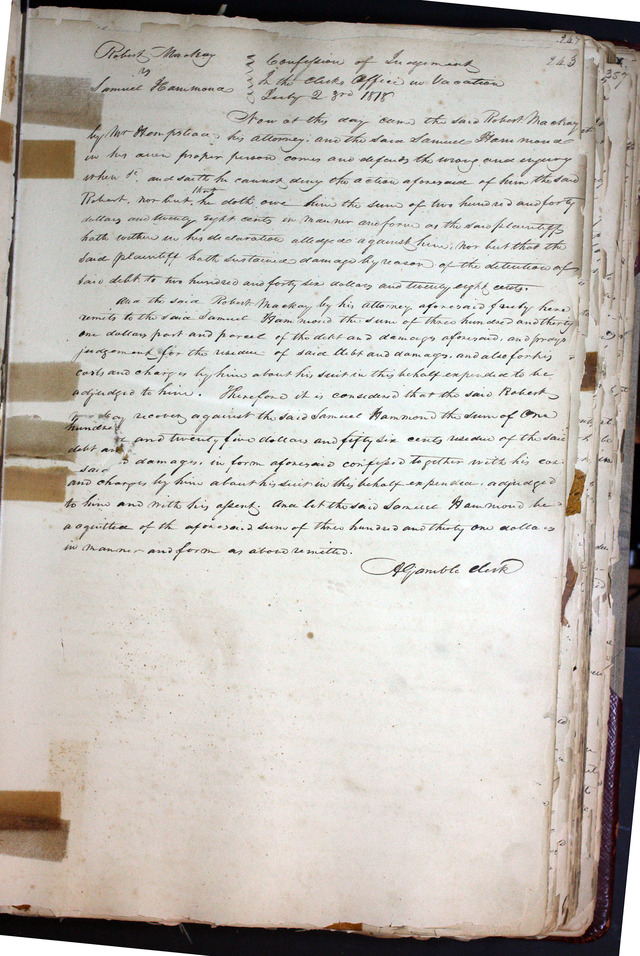 247
243
357
Robert Mackay
vs
Samuel Hammond
Confession of Judgement
In the Clerks Office in Vacation
July 23rd 1818
Now at this day came the said Robert Mackay
by Mr Hempstead, his attorney, and the said Samuel Hammond
in his own proper person comes and defends the wrong and injury
when &c. and saith he cannot deny the action aforesaid of him the said
Robert, nor but that he doth owe him the sum of two hundred and forty
dollars and twenty eight cents in manner and form as the said plaintiff
hath within in his declaration alledged against him; nor but that the
said plaintiff hath sustained damage by reason of the detention of
said debt to two hundred and forty six dollars and twenty eight cents.
And the said Robert Mackay by his attorney aforesaid freely here
remits to the said Samuel Hammond the sum of three hundred and thirty
one dollars part and parcel of the debt and damages aforesaid, and prays
judgement for the residue of said debt and damages, and also for his
costs and charges by him about his suit in this behalf expended to be
adjudged to him. Therefore it is considered that the said Robert
recover against the said Samuel Hammond the sum of One
hundred and twenty five dollars and fifty six cents residue of the said
debt and damages, in form aforesaid confessed together with his cos
said
and charges by him about his suit in this behalf expended, adjudged
to him and with his assent. And let the said Samuel Hammond be
acquitted of the aforesaid sum of three hundred and thirty one dollars
in manner and form as above remitted.
A Gamble Clerk